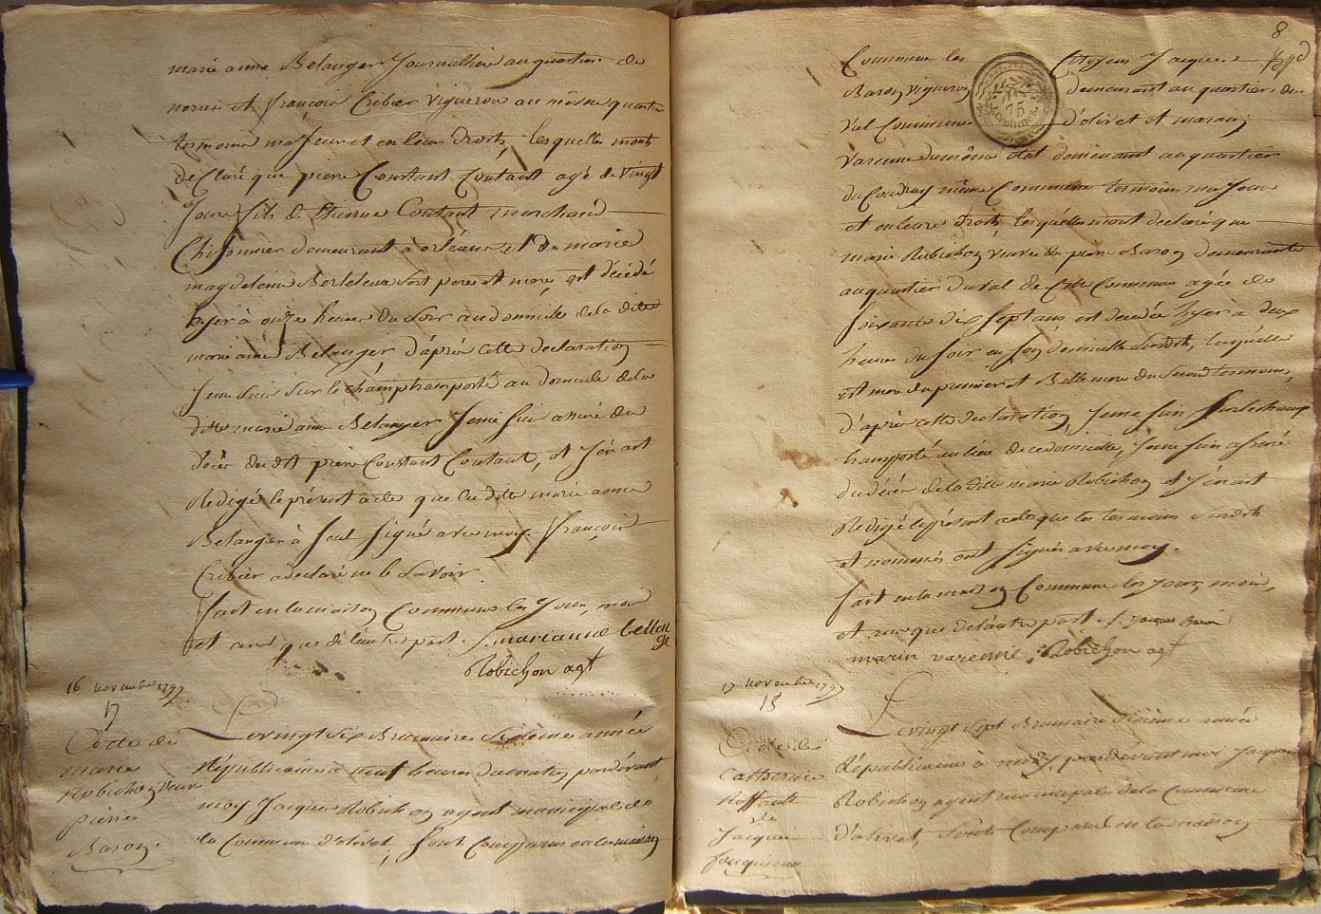 marie anne Belanger Journallière au quartier du
noras et françois Cribier vigneron au même quartier
temoins majeurs et en leurs droits, lesquelles mont
déClaré que pierre Constant Coutant agé de vingt
Jours fils de Etienne Coutant marchand
Chifonnier demeurant à orléans et De marie
magdeleine Berteleau sest peres et mere, est décédé
hyer à onze heures du Soir au domicile de la ditte
marie anne Belanger d'après cette declaration
Jeme suis sur le champ transporté au domicile de la
ditte marie anne Belanger Jeme suis assuré du
décès du dit pierre Constant Coutant, et J'en ait
Redigé le présent acte que la ditte marie anne
Belanger à seul signé avec moy. françois
Cribier a declaré ne le savoir.
fait en la maison Commune les Jours, mois
et an que de l'autre part. marianne bellen
ge
Robichon agt
16 novembre 1797
17
Décès de
marie
Robichon veuve
pierre
Baron.
Le vingt Six Brumaire Sixième année
Républicaine à neuf heures du matin, pardevant
moy Jacques Robichon agent municipal de
la Commune d'olivet, sont comparus en la maison
8
Commune les Citoyens Jacques
Baron vigneron demeurant au quartier du
Val Commune d'olivet et marin
Varenne du même état demeurant au quartier
du Coudray même Commune temoins majeurs
et en leurs droits, lesquelles mont declaré que
marie Robichon veuve de pierre Baron demeurante
au quartier du Val de Cette Commune agée de
soixante dix sept ans est decedée hyer à deux
heures du soir en son domicille susdit, laquelle
est mere du premier et Belle mere du second temoins,
d'après cette declaration, Jeme suis surlechamp
transporté au lieu de ce domicille, Jeme suis assuré
du décès de la ditte marie Robichon et J'en ait
Redigé le présent acte que les temoins susdits
et nommés ont signés avec moy.
fait en la maison Commune les Jours, mois,
et an que de l'autre part. Jacques Baron
marin varenne. Robichon agt
17 novembre 1797
18
Décès de
Catherine
Roffault
de
Jacques
Jacquineau
Le vingt Sept Brumaire Sixième année
Républicaine à midy, pardevant moi Jacques
Robichon agent municipal de la Commune
d'olivet, Sont Comparus en la maison